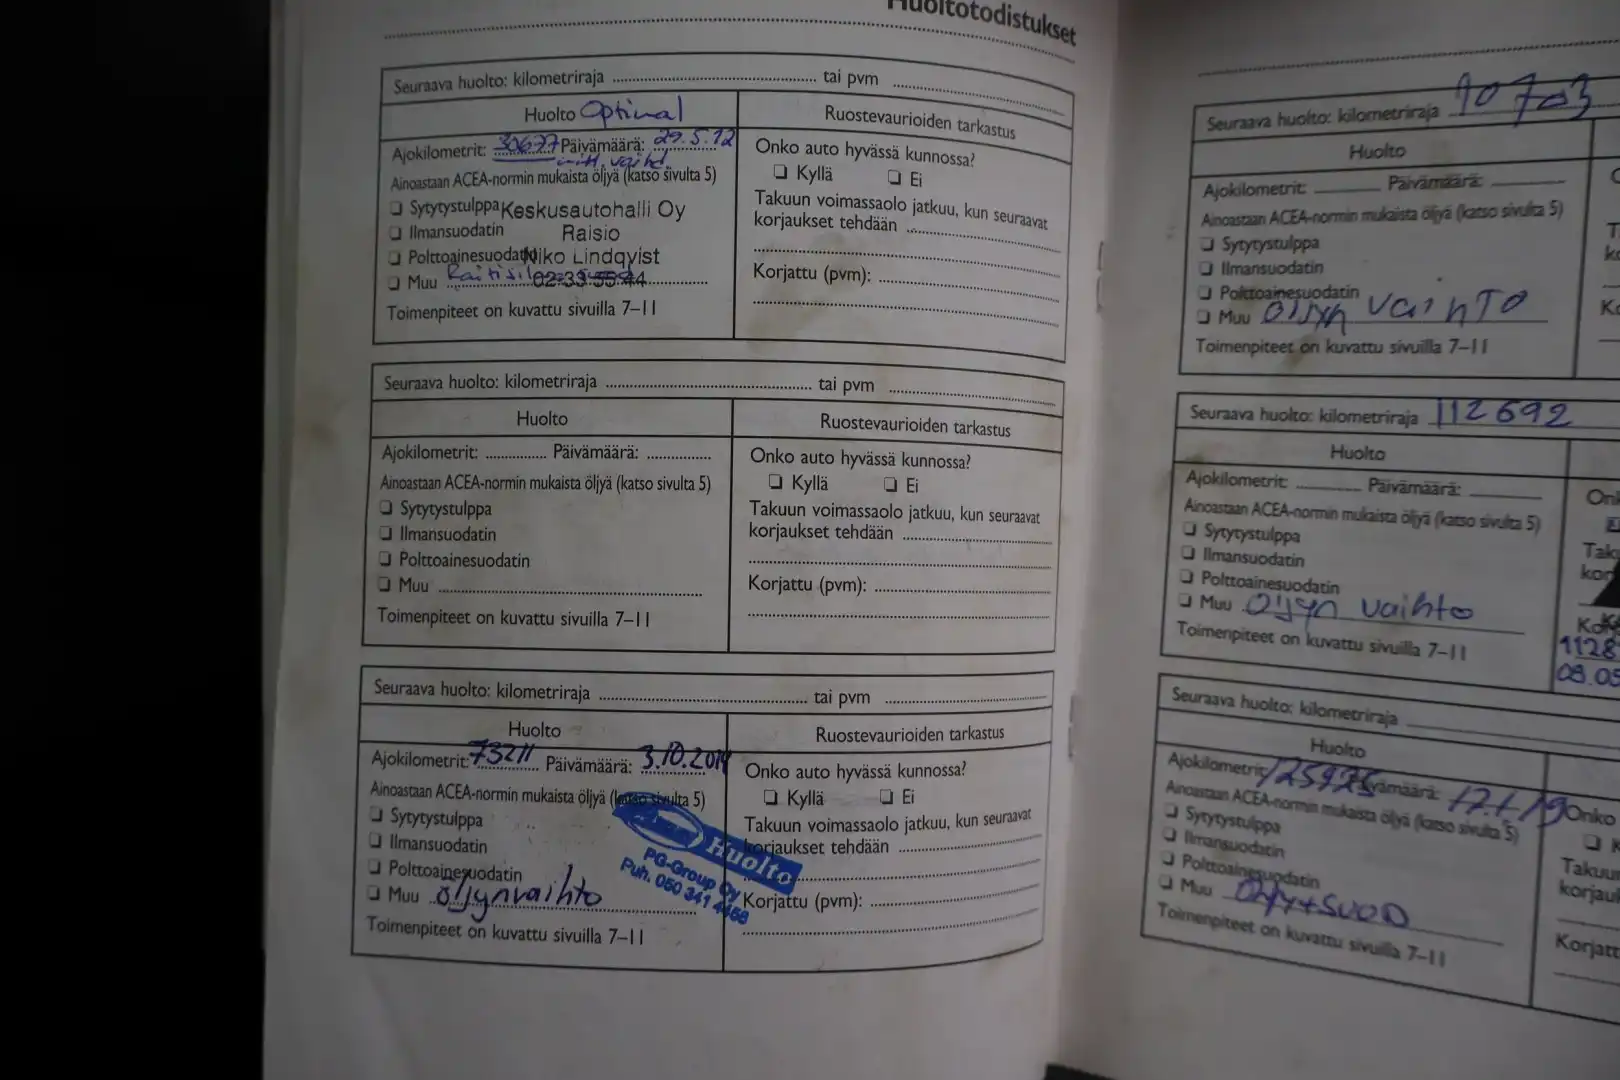 Huoltotodistukset
Seuraava huolto: kilometriraja tai pvm
Huolto Optimal
Ruostevaurioiden tarkastus
Ajokilometrit: 30677 Päivämäärä: 29.5.12
Ainoastaan ACEA-normin mukaista öljyä (katso sivulta 5)
Sytytystulppa
Ilmansuodatin
Polttoainesuodatin
Muu
Keskusautohalli Oy
Raisio
Niko Lindqvist
02-33 55 44
Toimenpiteet on kuvattu sivuilla 7–11
Onko auto hyvässä kunnossa?
Kyllä Ei
Takuun voimassaolo jatkuu, kun seuraavat
korjaukset tehdään
Korjattu (pvm):
Seuraava huolto: kilometriraja tai pvm
Huolto
Ruostevaurioiden tarkastus
Ajokilometrit: Päivämäärä:
Ainoastaan ACEA-normin mukaista öljyä (katso sivulta 5)
Sytytystulppa
Ilmansuodatin
Polttoainesuodatin
Muu
Toimenpiteet on kuvattu sivuilla 7–11
Onko auto hyvässä kunnossa?
Kyllä Ei
Takuun voimassaolo jatkuu, kun seuraavat
korjaukset tehdään
Korjattu (pvm):
Seuraava huolto: kilometriraja tai pvm
Huolto
Ruostevaurioiden tarkastus
Ajokilometrit: 73211 Päivämäärä: 3.10.2014
Ainoastaan ACEA-normin mukaista öljyä (katso sivulta 5)
Sytytystulppa
Ilmansuodatin
Polttoainesuodatin
Muu öljynvaihto
Toimenpiteet on kuvattu sivuilla 7–11
Huolto
PG-Group Oy
Puh. 050 341 4468
Onko auto hyvässä kunnossa?
Kyllä Ei
Takuun voimassaolo jatkuu, kun seuraavat
korjaukset tehdään
Korjattu (pvm):
Seuraava huolto: kilometriraja 90703
Huolto
Ajokilometrit: Päivämäärä:
Ainoastaan ACEA-normin mukaista öljyä (katso sivulta 5)
Sytytystulppa
Ilmansuodatin
Polttoainesuodatin
Muu öljyn vaihto
Toimenpiteet on kuvattu sivuilla 7–11
Seuraava huolto: kilometriraja 112692
Huolto
Ajokilometrit: Päivämäärä:
Ainoastaan ACEA-normin mukaista öljyä (katso sivulta 5)
Sytytystulppa
Ilmansuodatin
Polttoainesuodatin
Muu öljyn vaihto
Toimenpiteet on kuvattu sivuilla 7–11
1128
Seuraava huolto: kilometriraja
Huolto
Ajokilometrit: 125925 Päivämäärä: 17.1.19
Ainoastaan ACEA-normin mukaista öljyä (katso sivulta 5)
Sytytystulppa
Ilmansuodatin
Polttoainesuodatin
Muu Öljy+SUOD
Toimenpiteet on kuvattu sivuilla 7–11
Onko
Takuun
korjau
Korjatt